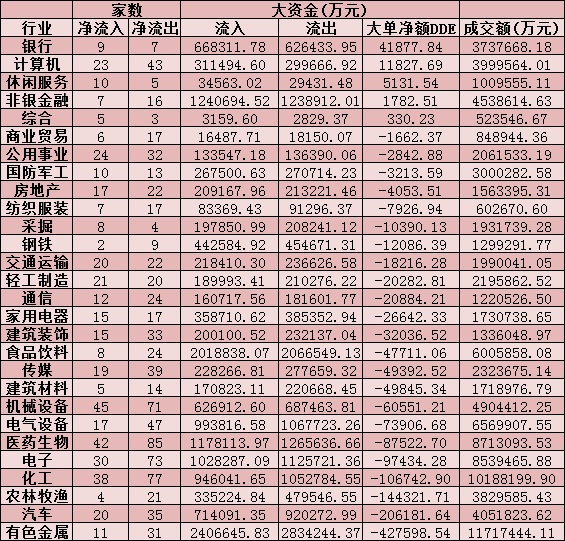 家数 大资金(万元)
行业 净流入 净流出 流入 流出 大单净额DDE 成交额(万元)
银行 9 7 668311.78 626433.95 41877.84 3737668.18
计算机 23 43 311494.60 299666.92 11827.69 3999564.01
休闲服务 10 5 34563.02 29431.48 5131.54 1009555.11
非银金融 7 16 1240694.52 1238912.01 1782.51 4538614.63
综合 5 3 3159.60 2829.37 330.23 523546.67
商业贸易 6 17 16487.71 18150.07 -1662.37 848944.36
公用事业 24 32 133547.18 136390.06 -2842.88 2061533.19
国防军工 10 13 267500.63 270714.23 -3213.59 3000282.58
房地产 17 22 209167.96 213221.46 -4053.51 1563395.31
纺织服装 7 17 83369.43 91296.37 -7926.94 602670.60
采掘 8 4 197850.99 208241.12 -10390.13 1931739.28
钢铁 2 9 442584.92 454671.31 -12086.39 1299291.77
交通运输 20 22 218410.30 236626.58 -18216.28 1990041.05
轻工制造 21 20 189993.41 210276.22 -20282.81 2195862.52
通信 12 24 160717.56 181601.77 -20884.21 1220526.50
家用电器 15 17 358710.62 385352.94 -26642.33 1730738.65
建筑装饰 15 33 200100.52 232137.04 -32036.52 1336048.97
食品饮料 8 24 2018838.07 2066549.13 -47711.06 6005858.08
传媒 19 39 228266.81 277659.32 -49392.52 2323675.14
建筑材料 5 14 170823.11 220668.45 -49845.34 1718976.79
机械设备 45 71 626912.60 687463.81 -60551.21 4904412.25
电气设备 17 47 993816.58 1067723.26 -73906.68 6569907.55
医药生物 42 85 1178113.97 1265636.66 -87522.70 8713093.53
电子 30 73 1028287.09 1125721.36 -97434.28 8539465.88
化工 38 77 946041.65 1052784.55 -106742.90 10188199.90
农林牧渔 4 21 335224.84 479546.55 -144321.71 3829585.43
汽车 20 35 714091.35 920272.99 -206181.64 4051823.62
有色金属 11 31 2406645.83 2834244.37 -427598.54 11717444.11